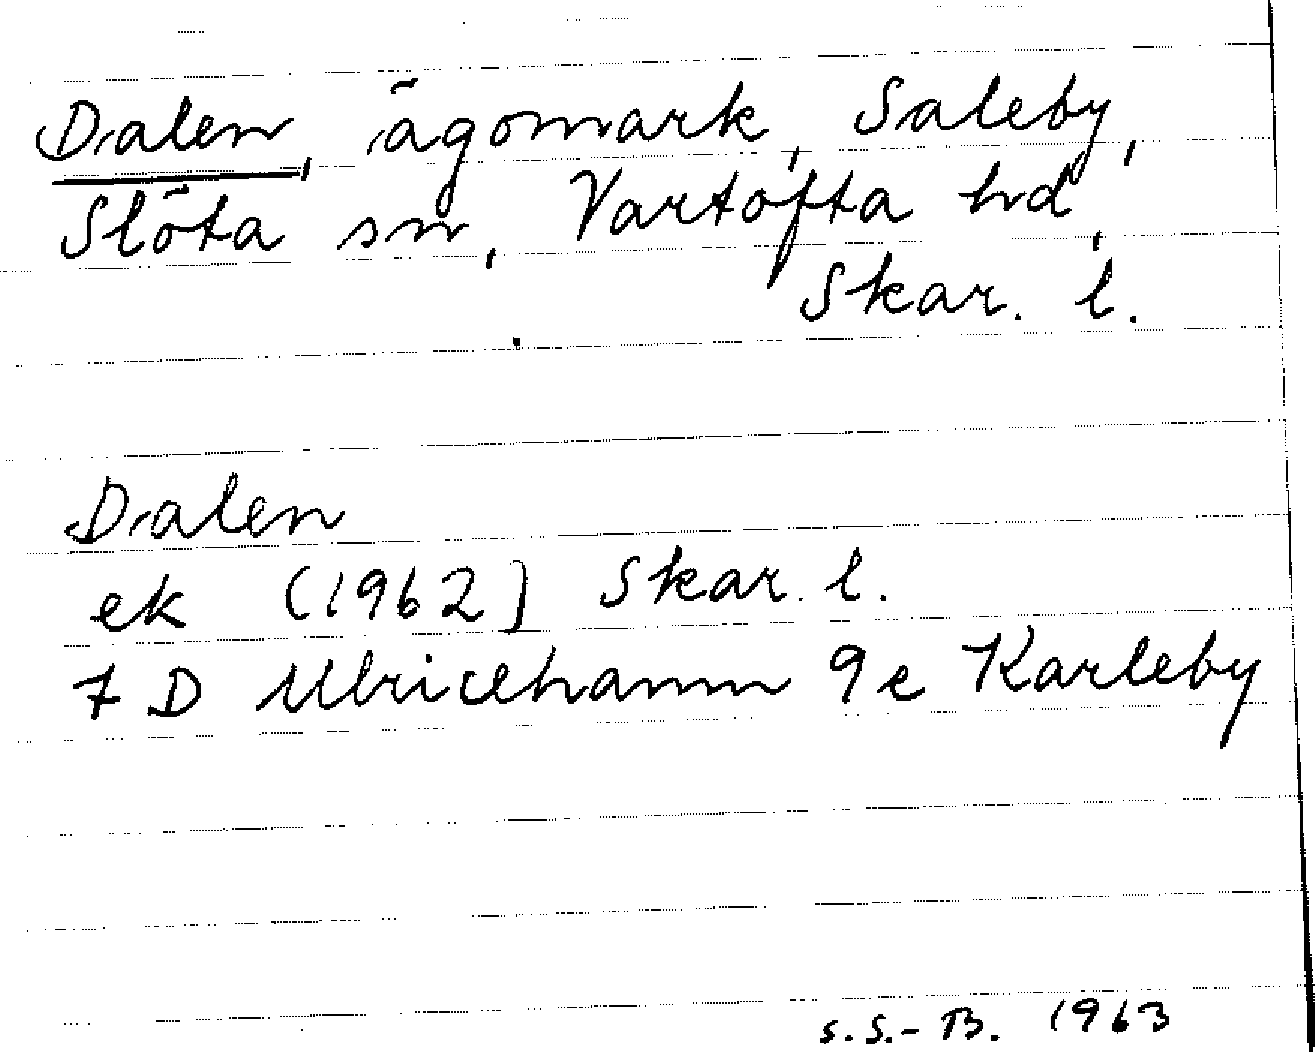 Dalen, ägomark, Saleby,
Slöta sn, Vartofta hd,
Skar. l.
Dalen
ek (1962) Skar. l.
7 D Ulricehamn 9e Karleby
S.S.-B. 1963